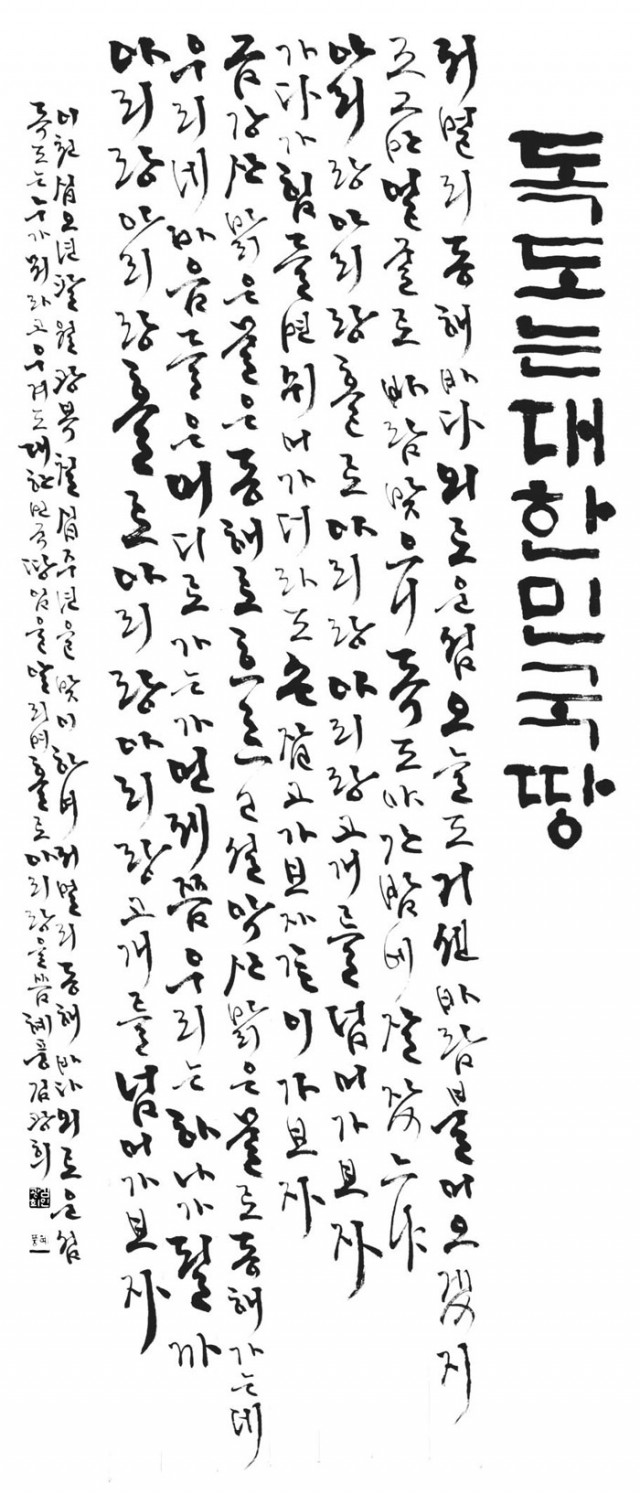 독도는대한민국땅
저멀리동해바다외로운섬오늘도거센바람불어오겠지
조그만얼굴로바람맞으니독도야간밤에잘잤느냐
아리랑아리랑홀로아리랑아리랑고개를넘어가보자
가다가힘들면쉬어가더라도손잡고가보자같이가보자
금강산맑은물은동해로흐르고설악산맑은물도동해가는데
우리네마음들은어디로가는가언제쯤우리는하나가될까
아리랑아리랑홀로아리랑아리랑고개를넘어가보자
이천십오년팔월광복칠십주년을맞이하여저멀리동해바다외로운섬
독도는누가뭐라고우겨도대한민국땅임을알리며홀로아리랑을씀혜풍김광희